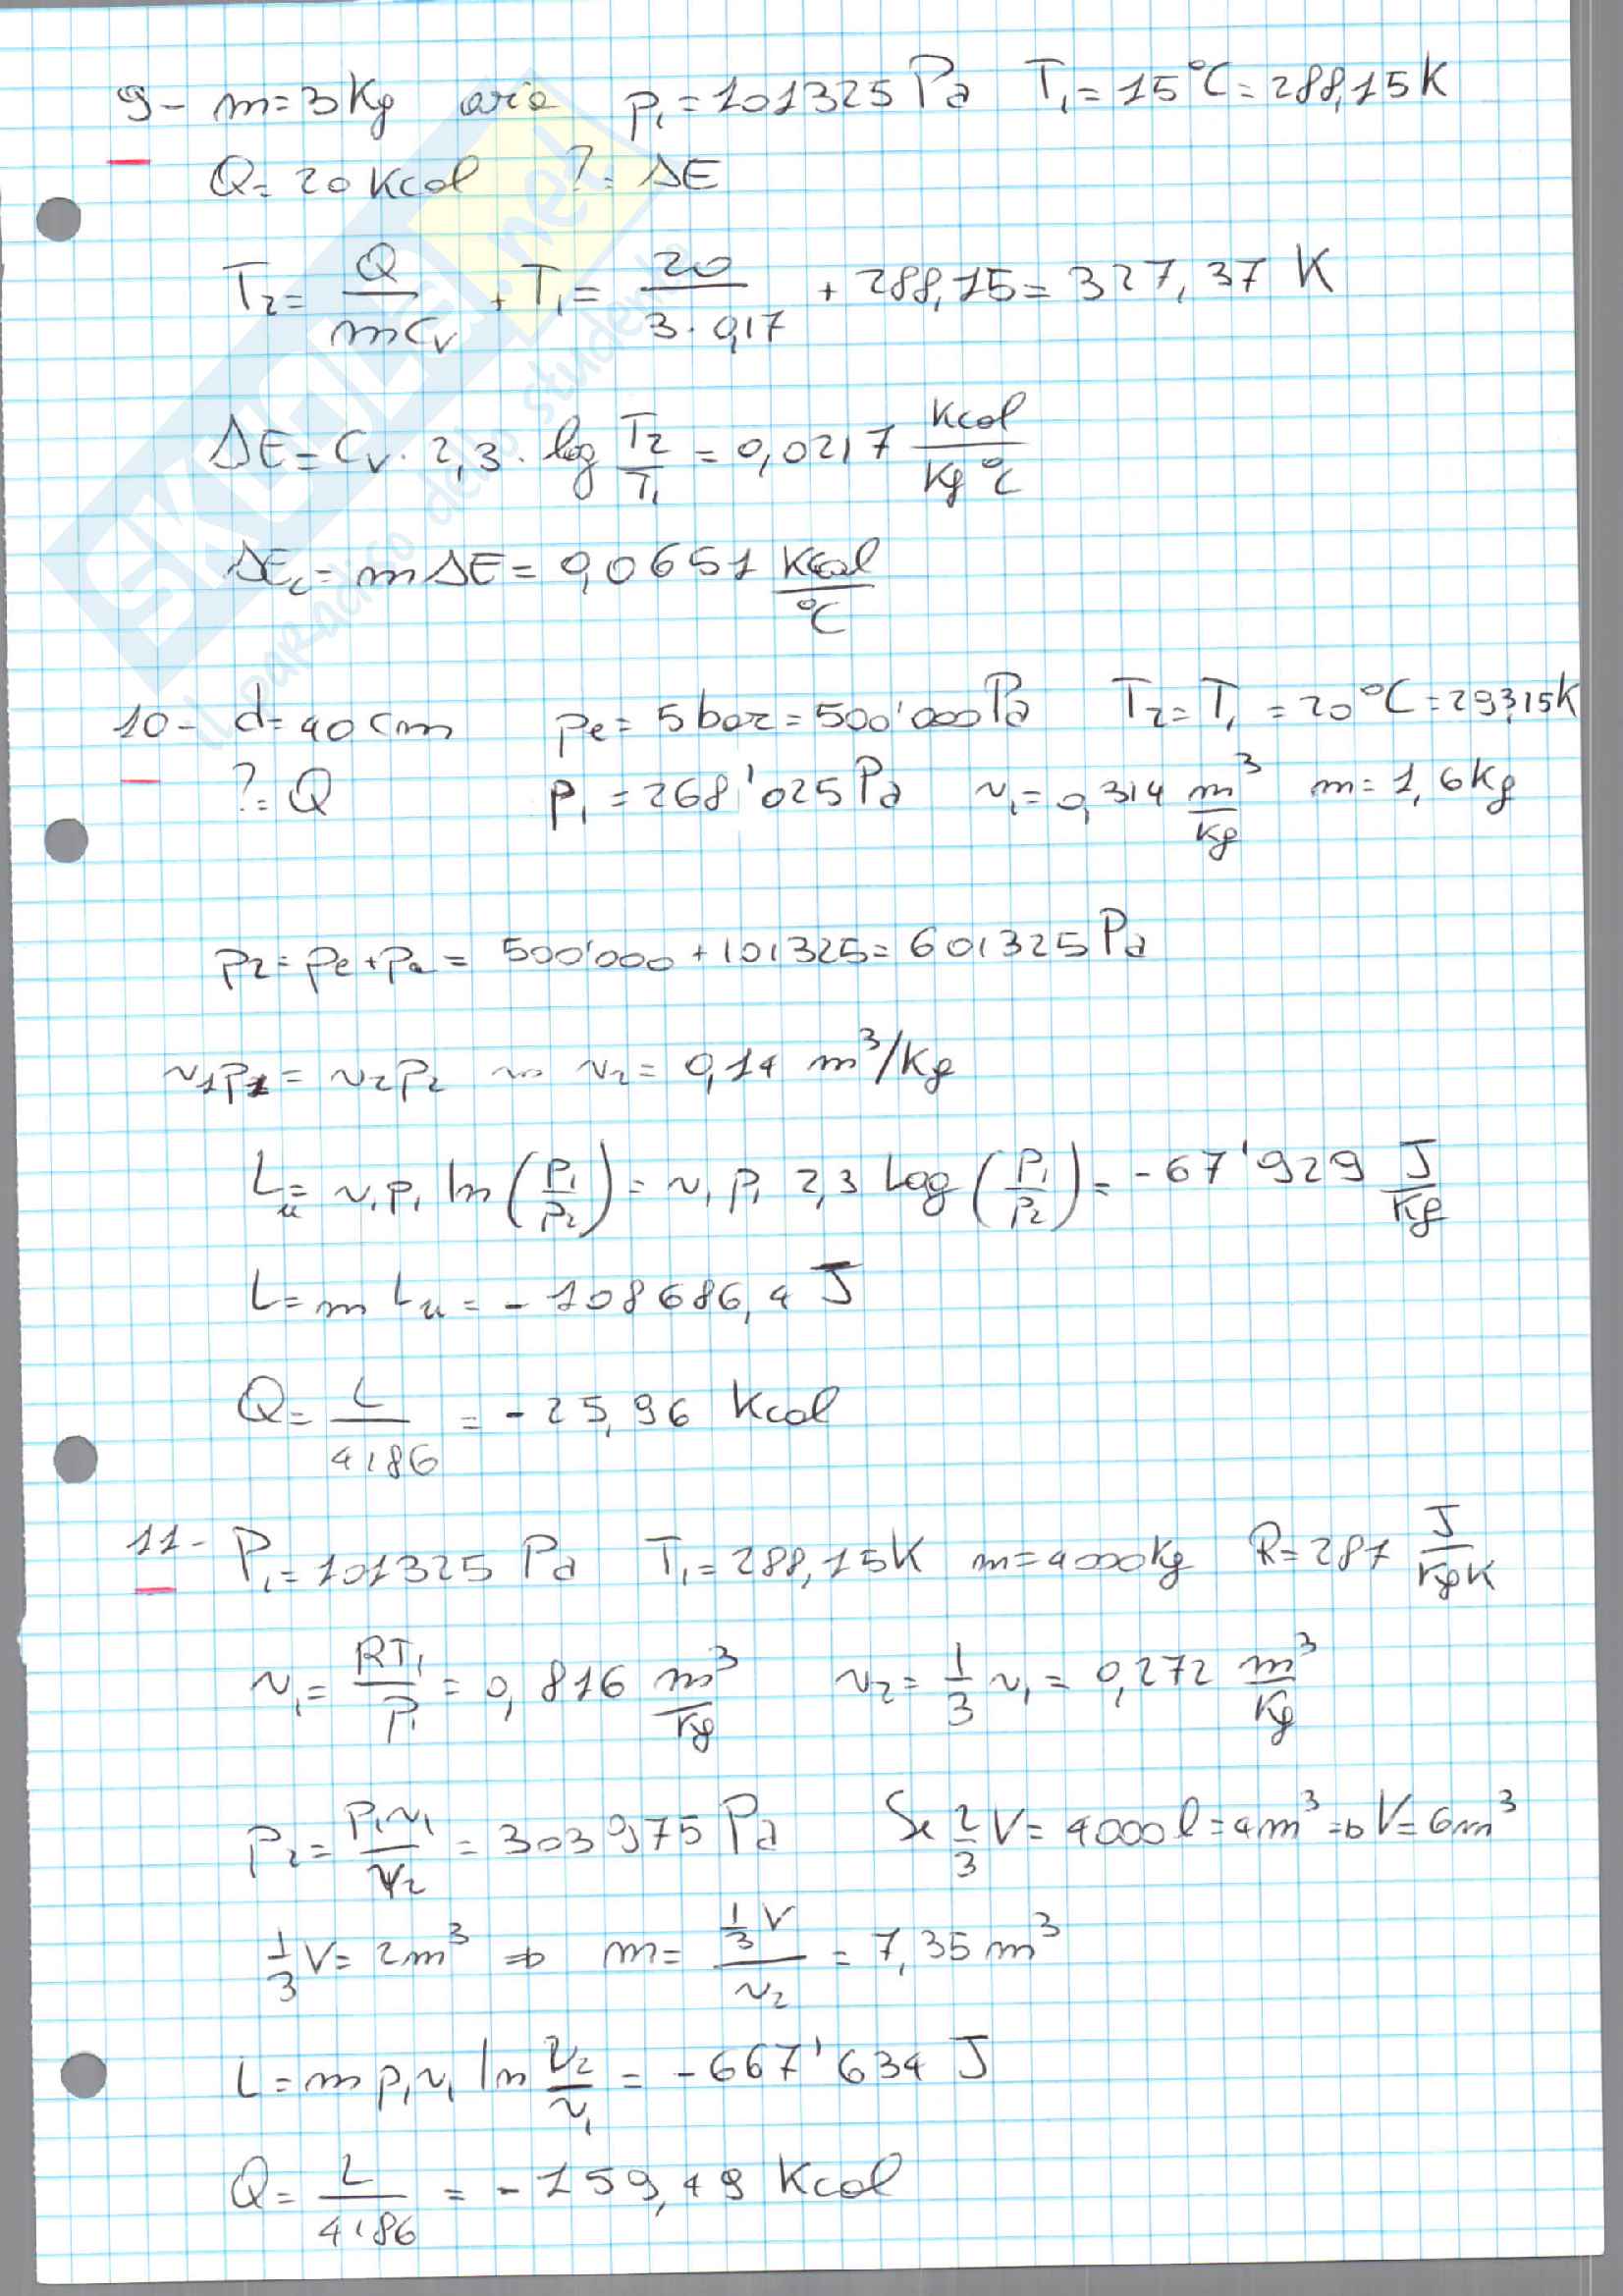 9- m=3Kg aria p₁=101325 Pa T₁=15°C=288,15K
Q=20 Kcal ?= ΔE
T₂= Q/(m Cv) + T₁= 20/(3·0,17) + 288,15= 327,37 K
ΔE= Cv· 2,3· log T₂/T₁ = 0,0217 Kcal/(Kg °C)
ΔEc= mΔE= 0,0651 Kcal/°C
10- d=40cm pe= 5bar=500'000Pa T₂=T₁=20°C=293,15K
?=Q p₁=268'025Pa v₁=0,314 m³/Kg m=1,6Kg
p₂=pe+pa= 500'000+101325=601325Pa
v₁p₁=v₂p₂ ⇝ v₂=0,14 m³/Kg
Lu= v₁p₁ ln(p₁/p₂)= v₁p₁ 2,3 Log(p₁/p₂)= -67'929 J/Kg
L=m Lu= -108686,4 J
Q= L/4186 = -25,96 Kcal
11- P₁=101325 Pa T₁=288,15K m=4000Kg R=287 J/KgK
v₁= RT₁/P₁ = 0,816 m³/Kg v₂= 1/3 v₁= 0,272 m³/Kg
p₂= p₁v₁/v₂ = 303975 Pa Se 2/3 V= 4000l=4m³ ⇒ V=6m³
1/3 V= 2m³ ⇒ m= (1/3 V)/v₂ = 7,35m³
L=m p₁v₁ ln v₂/v₁ = -667'634 J
Q= L/4186 = -159,49 Kcal
SKUOLA.net
il paradiso dello studente